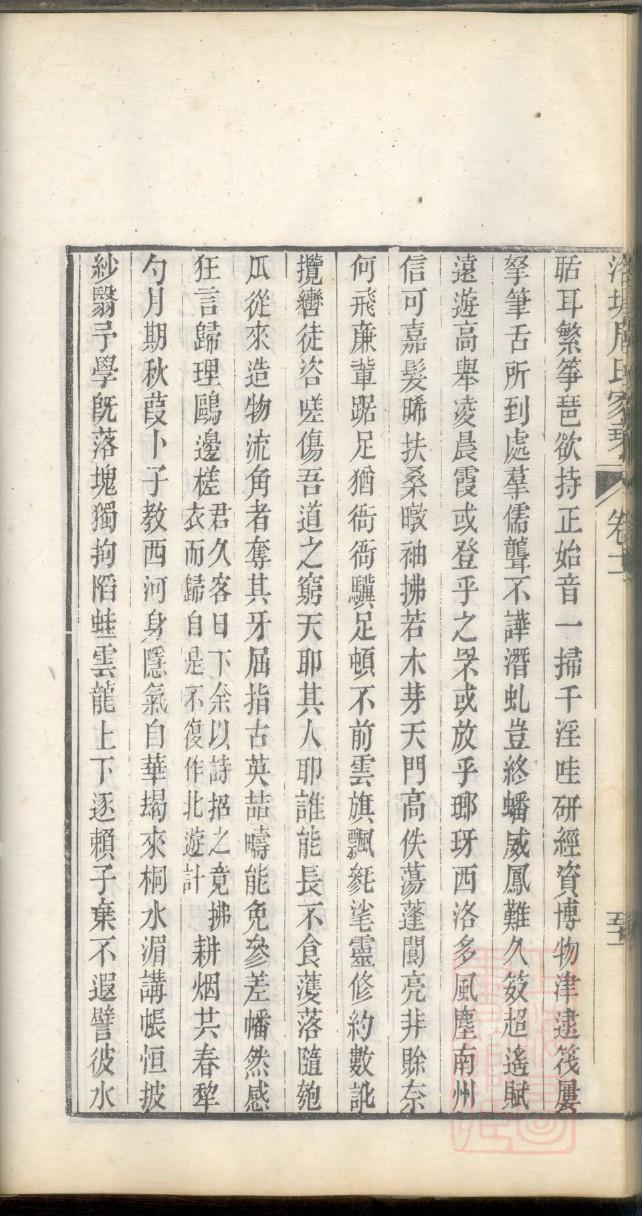 聒耳繁箏琶欲持正始音一掃千淫哇研經資博物津逮筏屢
拏筆舌所到處羣儒聾不譁潛虬豈終蟠威鳳難久笯超遙賦
遠遊高舉凌晨霞或登乎之罘或放乎瑯玡西洛多風塵南州
信可嘉髮晞扶桑暾袖拂若木芽天門高佚蕩蓬閬亮非賒奈
何飛廉輩踞足猶衙衙驥足頓不前雲旗飄毿毟靈修約數訛
攬轡徒咨嗟傷吾道之窮天耶其人耶誰能長不食濩落隨匏
瓜從來造物流角者奪其牙屈指古英喆疇能免參差幡然感
狂言歸理鷗邊槎君久客日下余以詩招之竟拂衣而歸自是不復作北遊計耕烟共春犂
勺月期秋葭卜子教西河身隱氣自華朅來桐水湄講帳恒披
紗翳予學旣落塊獨拘䧟蛙雲龍上下逐賴子棄不遐譬彼水
周氏家
卷二